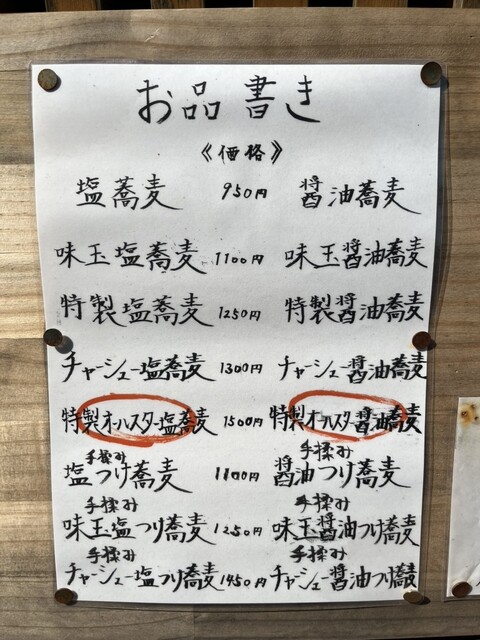 お品書き
《価格》
塩蕎麦 950円 醤油蕎麦
味玉塩蕎麦 1100円 味玉醤油蕎麦
特製塩蕎麦 1250円 特製醤油蕎麦
チャーシュー塩蕎麦 1300円 チャーシュー醤油蕎麦
特製オールスター塩蕎麦 1500円 特製オールスター醤油蕎麦
手揉み 手揉み
塩つけ蕎麦 1100円 醤油つけ蕎麦
手揉み 手揉み
味玉塩つけ蕎麦 1250円 味玉醤油つけ蕎麦
手揉み 手揉み
チャーシュー塩つけ蕎麦 1450円 チャーシュー醤油つけ蕎麦